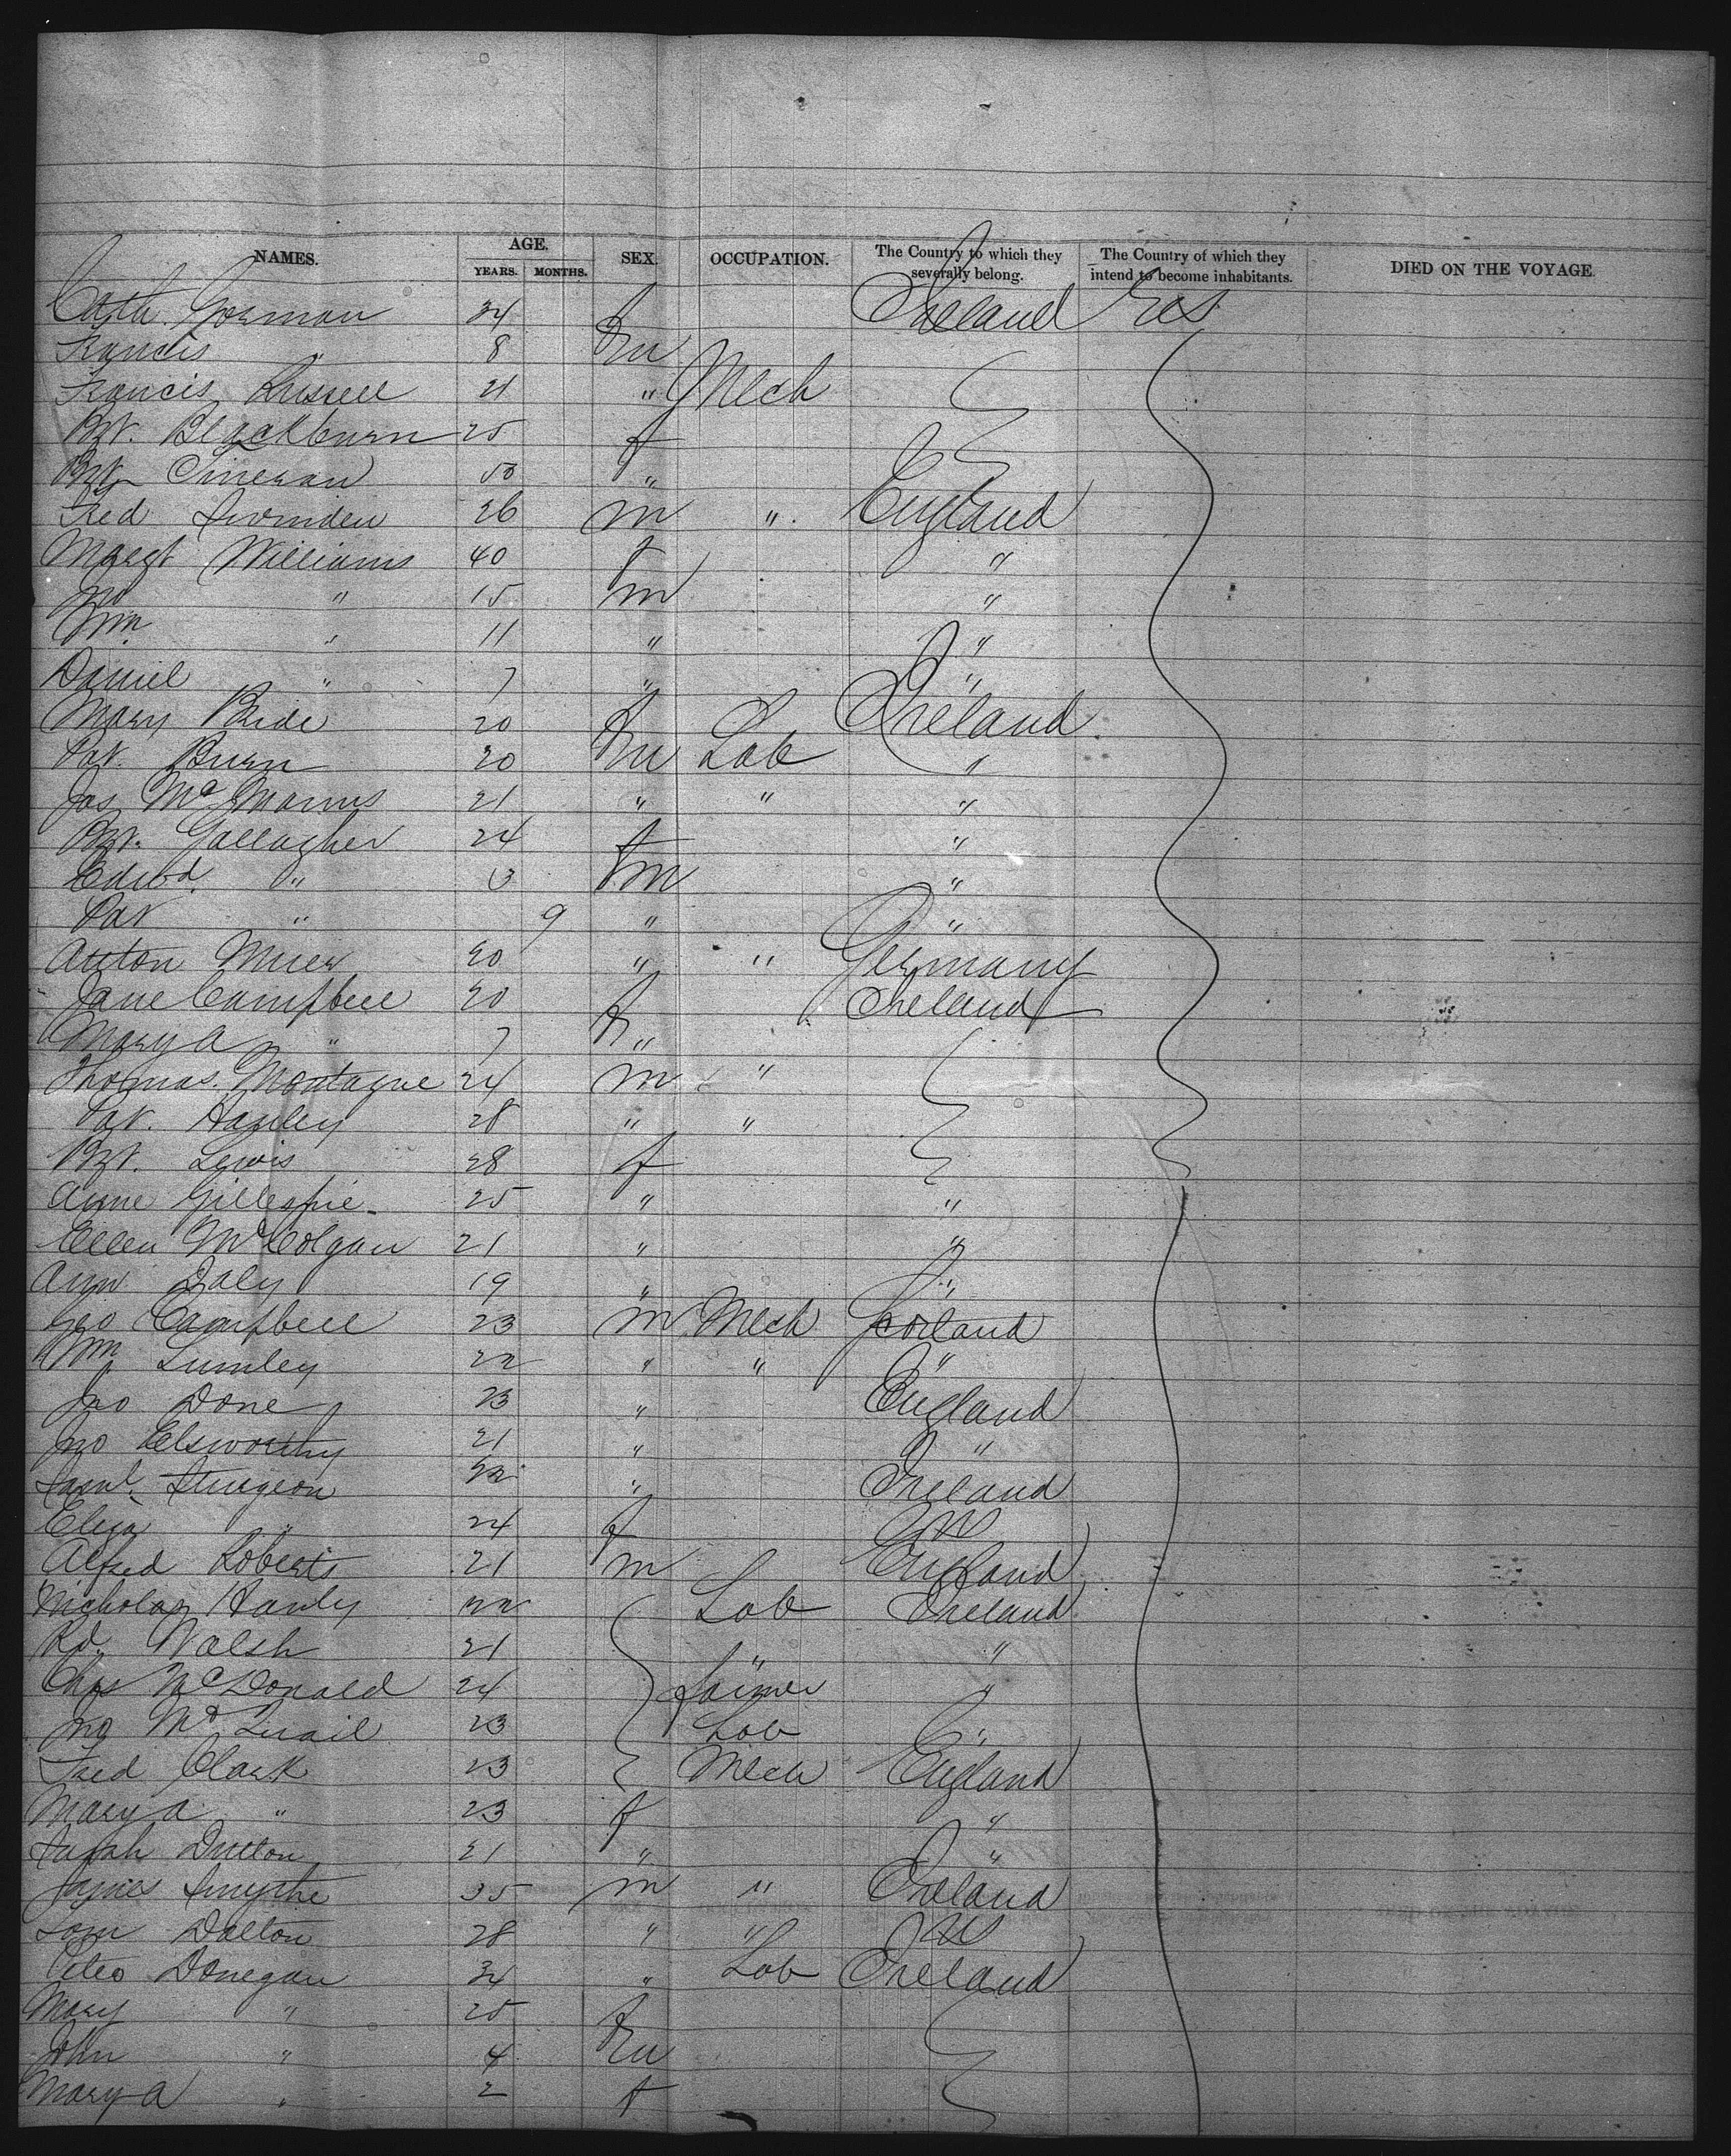 NAMES. AGE. YEARS. MONTHS. SEX. OCCUPATION. The Country to which they severally belong. The Country of which they intend to become inhabitants. DIED ON THE VOYAGE.
Cath. Gorman 34 f Ireland U.S
Francis " 8 m
Francis Russell 21 " Mech
Bgt. Blackburn 25 f
Bgt 50 "
Fred Swinden 26 m " England
Margt Williams 40 f "
Jno " 15 m "
Wm " 11 " "
Daniel " 7 " "
Mary Bride 20 f Ireland
Pat. Burn 20 m Lab "
Jas McManus 21 " " "
Bgt. Gallagher 24 f "
Edwd. " 3 m "
Pat " 9 " "
Anton Mier 20 " " Germany
Jane Campbell 30 f Ireland
Mary A " 7 "
Thomas Montague 24 m "
Pat. Hanley 28 " "
Bgt. Lewis 28 f
Anne Gillespie 25 " "
Ellen McColgan 21 " "
Ann Daly 19 " "
Geo Campbell 23 m Mech Scotland
Wm Lumley 22 " " "
Jno Done 23 " England
Jno Elsworthy 21 " "
Saml. Sturgeon 22 " Ireland
Eliza " 24 f U.S
Alfred Roberts 21 m England
Nicholas Hanly 22 Lab Ireland
Rd. Walsh 21 " "
Chas McDonald 24 farmer "
Jno McQuail 23 Lab "
Fred Clark 23 Mech England
Mary A " 23 f "
Sarah Dutton 21 " "
James Smythe 35 m " Ireland
Dalton 28 " " U.S
Donegan 34 " Lab Ireland
Mary " 25 f
John " 4 m
Mary A " 2 f